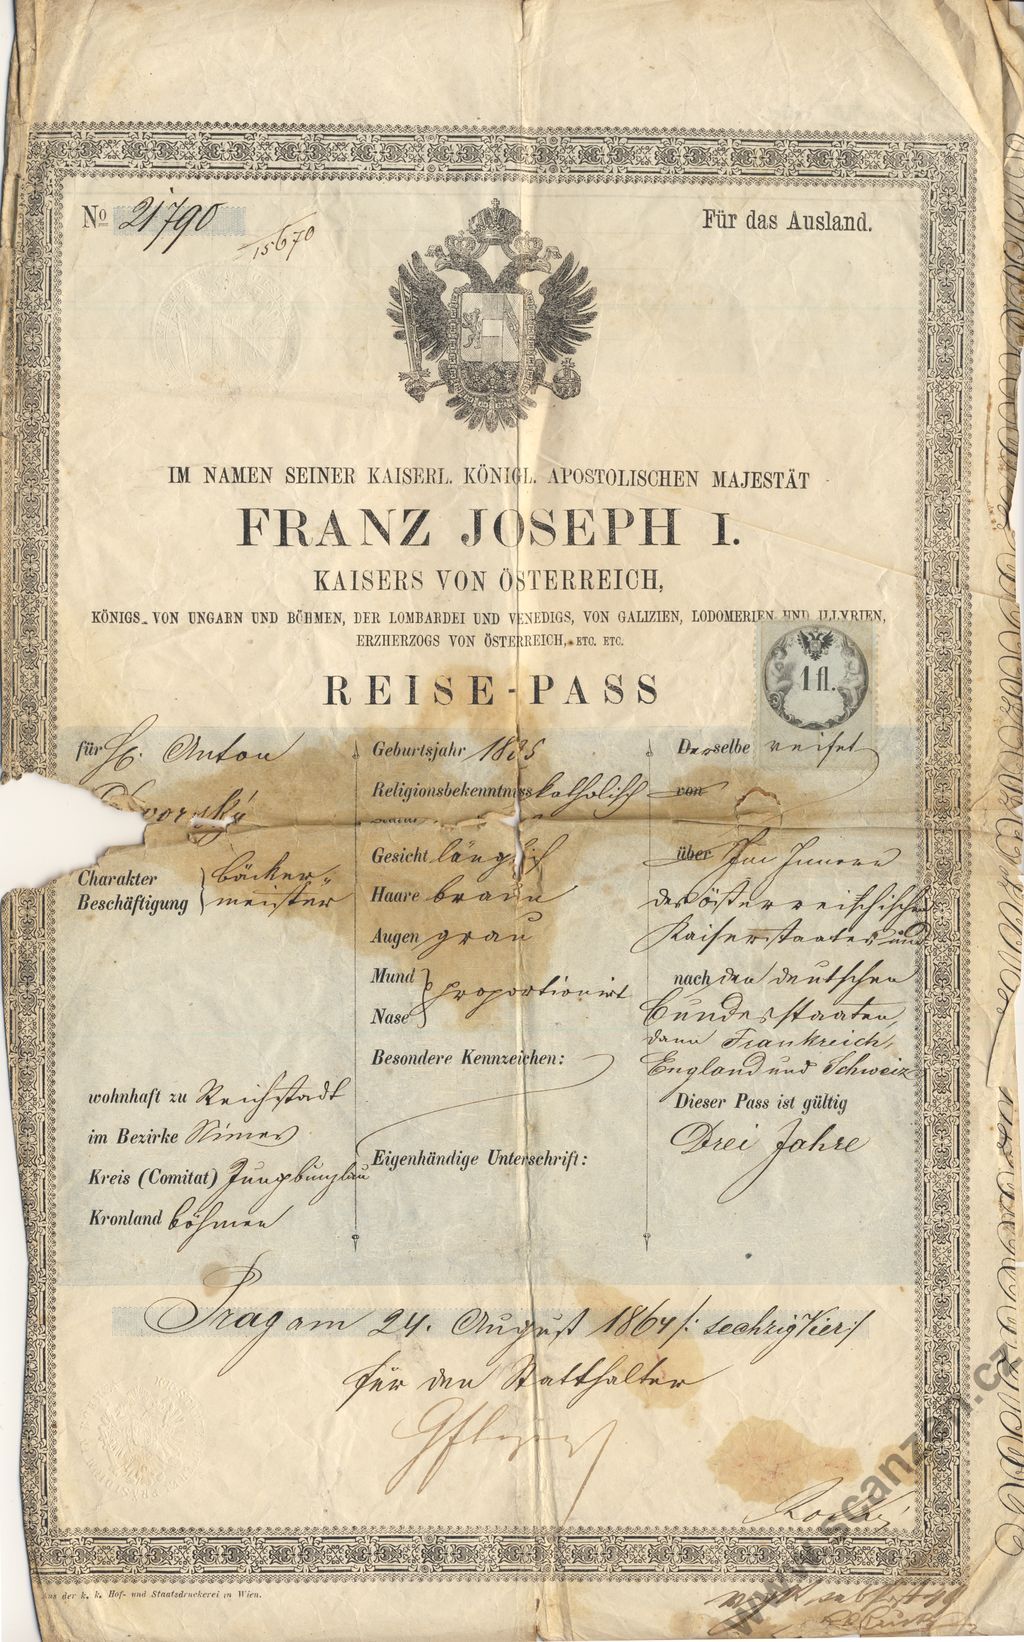 No 21790
15670
Für das Ausland.
IM NAMEN SEINER KAISERL. KÖNIGL. APOSTOLISCHEN MAJESTÄT
FRANZ JOSEPH I.
KAISERS VON ÖSTERREICH,
KÖNIGS VON UNGARN UND BÖHMEN, DER LOMBARDEI UND VENEDIGS, VON GALIZIEN, LODOMERIEN UND ILLYRIEN,
ERZHERZOGS VON ÖSTERREICH, ETC. ETC.
1 fl.
REISE-PASS
für H. Anton
Dworsky
Charakter
Beschäftigung
Bäcker-
meister
wohnhaft zu Reichstadt
im Bezirke Nimes
Kreis (Comitat) Jungbunzlau
Kronland Böhmen
Geburtsjahr 1825
Religionsbekenntniss katholisch
Statur
Gesicht länglich
Haare braun
Augen grau
Mund
Nase
proportionirt
Besondere Kennzeichen:
Eigenhändige Unterschrift:
Derselbe reiset
von
über Im Innern
des österreichischen
Kaiserstaates und
nach den deutschen
Bundesstaaten,
dann Frankreich,
England und Schweiz
Dieser Pass ist gültig
Drei Jahre
Prag am 24. August 1864 /: sechzig Vier :/
Für den Statthalter
Aus der k. k. Hof- und Staatsdruckerei in Wien.
www.scanzen.cz